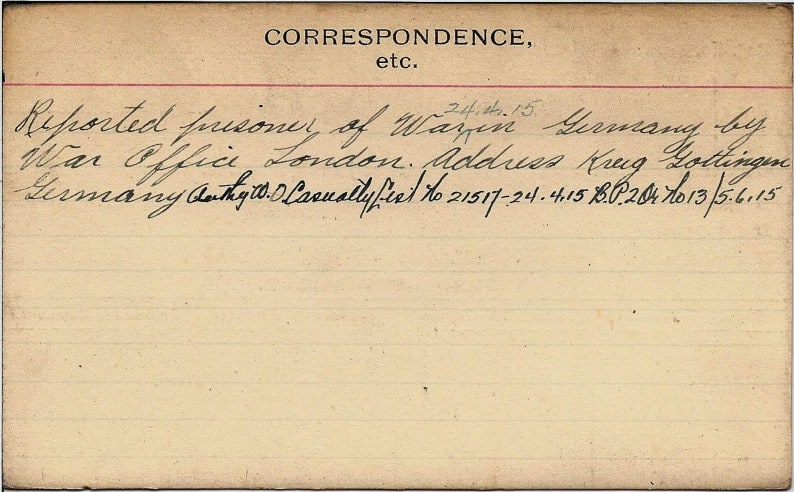 CORRESPONDENCE,
etc.
24.4.15
Reported prisoner of War in Germany by
War Office London. Address Kreig Gottingen
Germany Authy W.O Casualty List No 21517-24.4.15 B.P.2 Or No 13/5.6.15